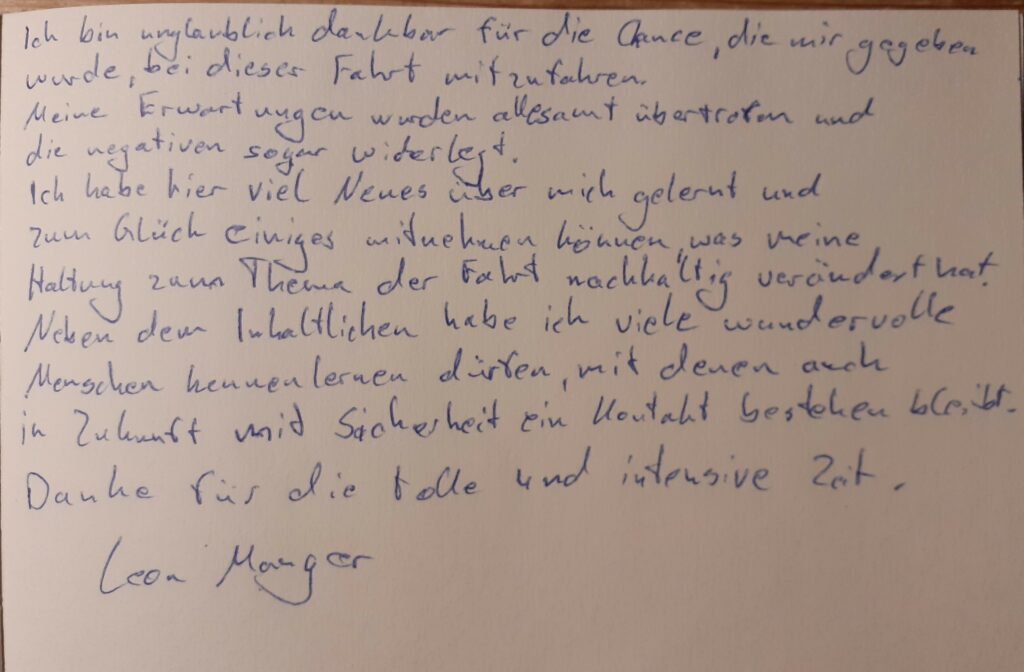 Ich bin unglaublich dankbar für die Chance, die mir gegeben
wurde, bei dieser Fahrt mitzufahren.
Meine Erwartungen wurden allesamt übertrofen und
die negativen sogar widerlegt.
Ich habe hier viel Neues über mich gelernt und
zum Glück einiges mitnehmen können, was meine
Haltung zum Thema der Fahrt nachhaltig verändert hat.
Neben dem Inhaltlichen habe ich viele wundervolle
Menschen kennenlernen dürfen, mit denen auch
in Zukunft mit Sicherheit ein Kontakt bestehen bleibt.
Danke für die tolle und intensive Zeit.
Leon Manger